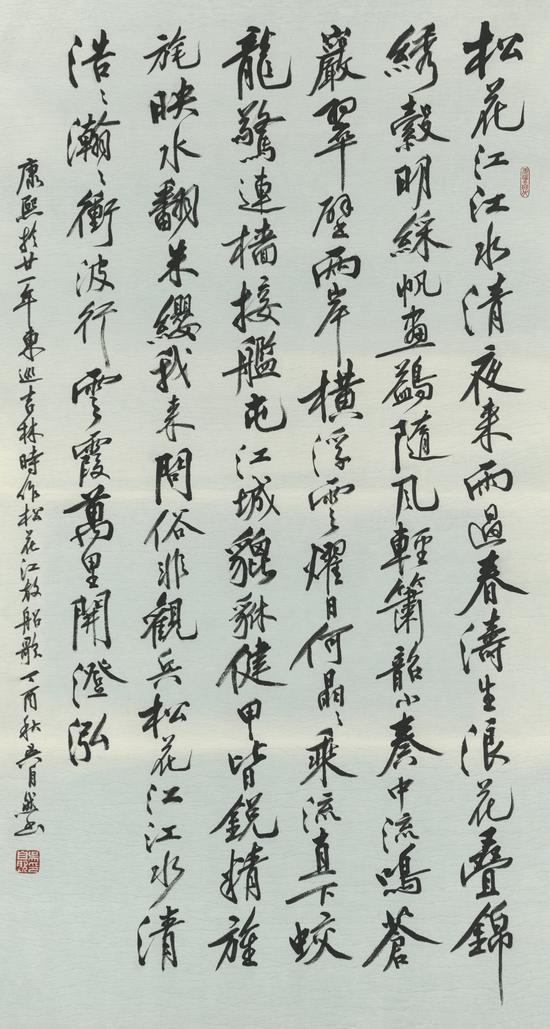 松花江江水清夜来雨過春濤生浪花疊錦
綉縠明綵帆畫鷁隨風輕簫韶小奏中流鳴蒼
巖翠壁兩岸橫浮雲耀日何晶〻乘流直下蛟
龍驚連檣接艦屯江城貔貅健甲皆銳精旌
旄映水翻朱纓我来問俗非觀兵松花江江水清
浩〻瀚〻衝波行雲霞萬里開澄泓
康熙於廿一年東巡吉林時作松花江放船歌丁酉秋